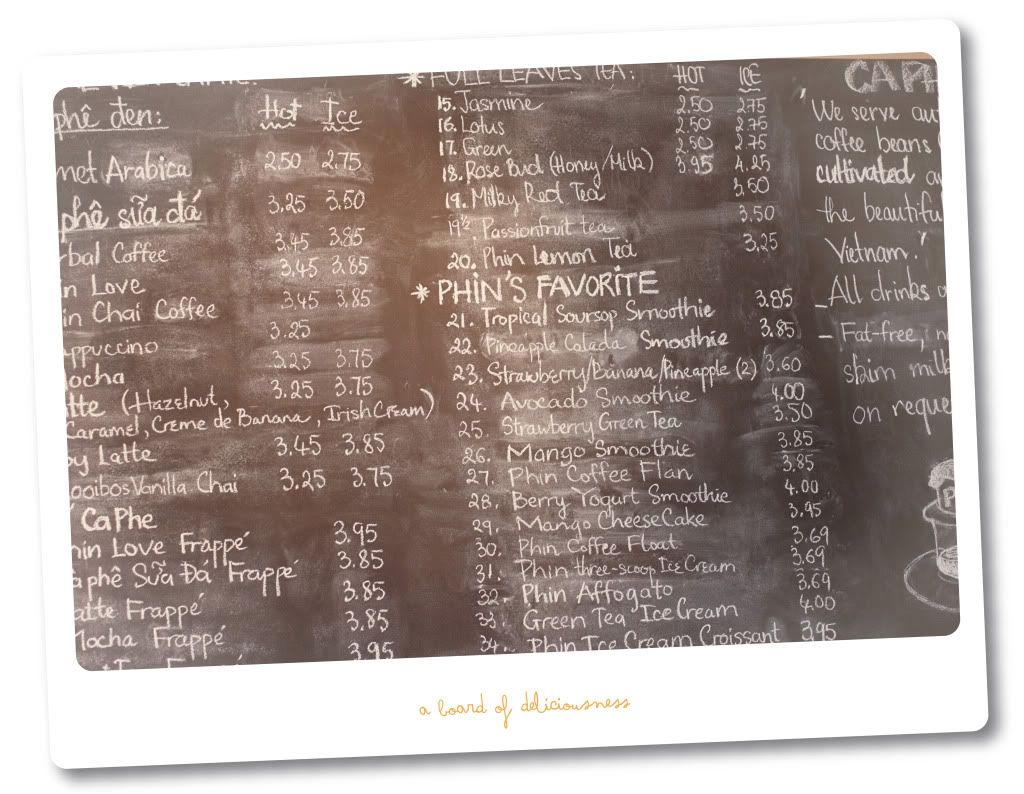 phê đen: Hot Ice
met Arabica 2.50 2.75
phê sữa đá 3.25 3.50
rbal Coffee 3.45 3.85
n Love 3.45 3.85
in Chai Coffee 3.45 3.85
appuccino 3.25
locha 3.25 3.75
tte (Hazelnut, 3.25 3.75
Caramel, Creme de Banana, Irish Cream)
oy Latte 3.45 3.85
ooibos Vanilla Chai 3.25 3.75
CaPhe
hin Love Frappé 3.95
aphê Sữa Đá Frappé 3.85
atte Frappé 3.85
Mocha Frappé 3.85
3.95
* FULL LEAVES TEA: HOT ICE
15. Jasmine 2.50 2.75
16. Lotus 2.50 2.75
17. Green 2.50 2.75
18. Rose Bud (Honey/Milk) 3.95 4.25
19. Milky Red Tea 3.50
19½. Passionfruit tea 3.50
20. Phin Lemon Tea 3.25
* PHIN'S FAVORITE
21. Tropical Soursop Smoothie 3.85
22. Pineapple Colada Smoothie 3.85
23. Strawberry/Banana/Pineapple (2) 3.60
24. Avocado Smoothie 4.00
25. Strawberry Green Tea 3.50
26. Mango Smoothie 3.85
27. Phin Coffee Flan 3.85
28. Berry Yogurt Smoothie 4.00
29. Mango CheeseCake 3.95
30. Phin Coffee Float 3.69
31. Phin three-scoop Ice Cream 3.69
32. Phin Affogato 3.69
33. Green Tea Ice Cream 4.00
34. Phin Ice Cream Croissant 3.95
CAPH
We serve au
coffee beans
cultivated a
the beautifu
Vietnam!
_All drinks
– Fat-free, n
skim milk
on reque
P
a board of deliciousness